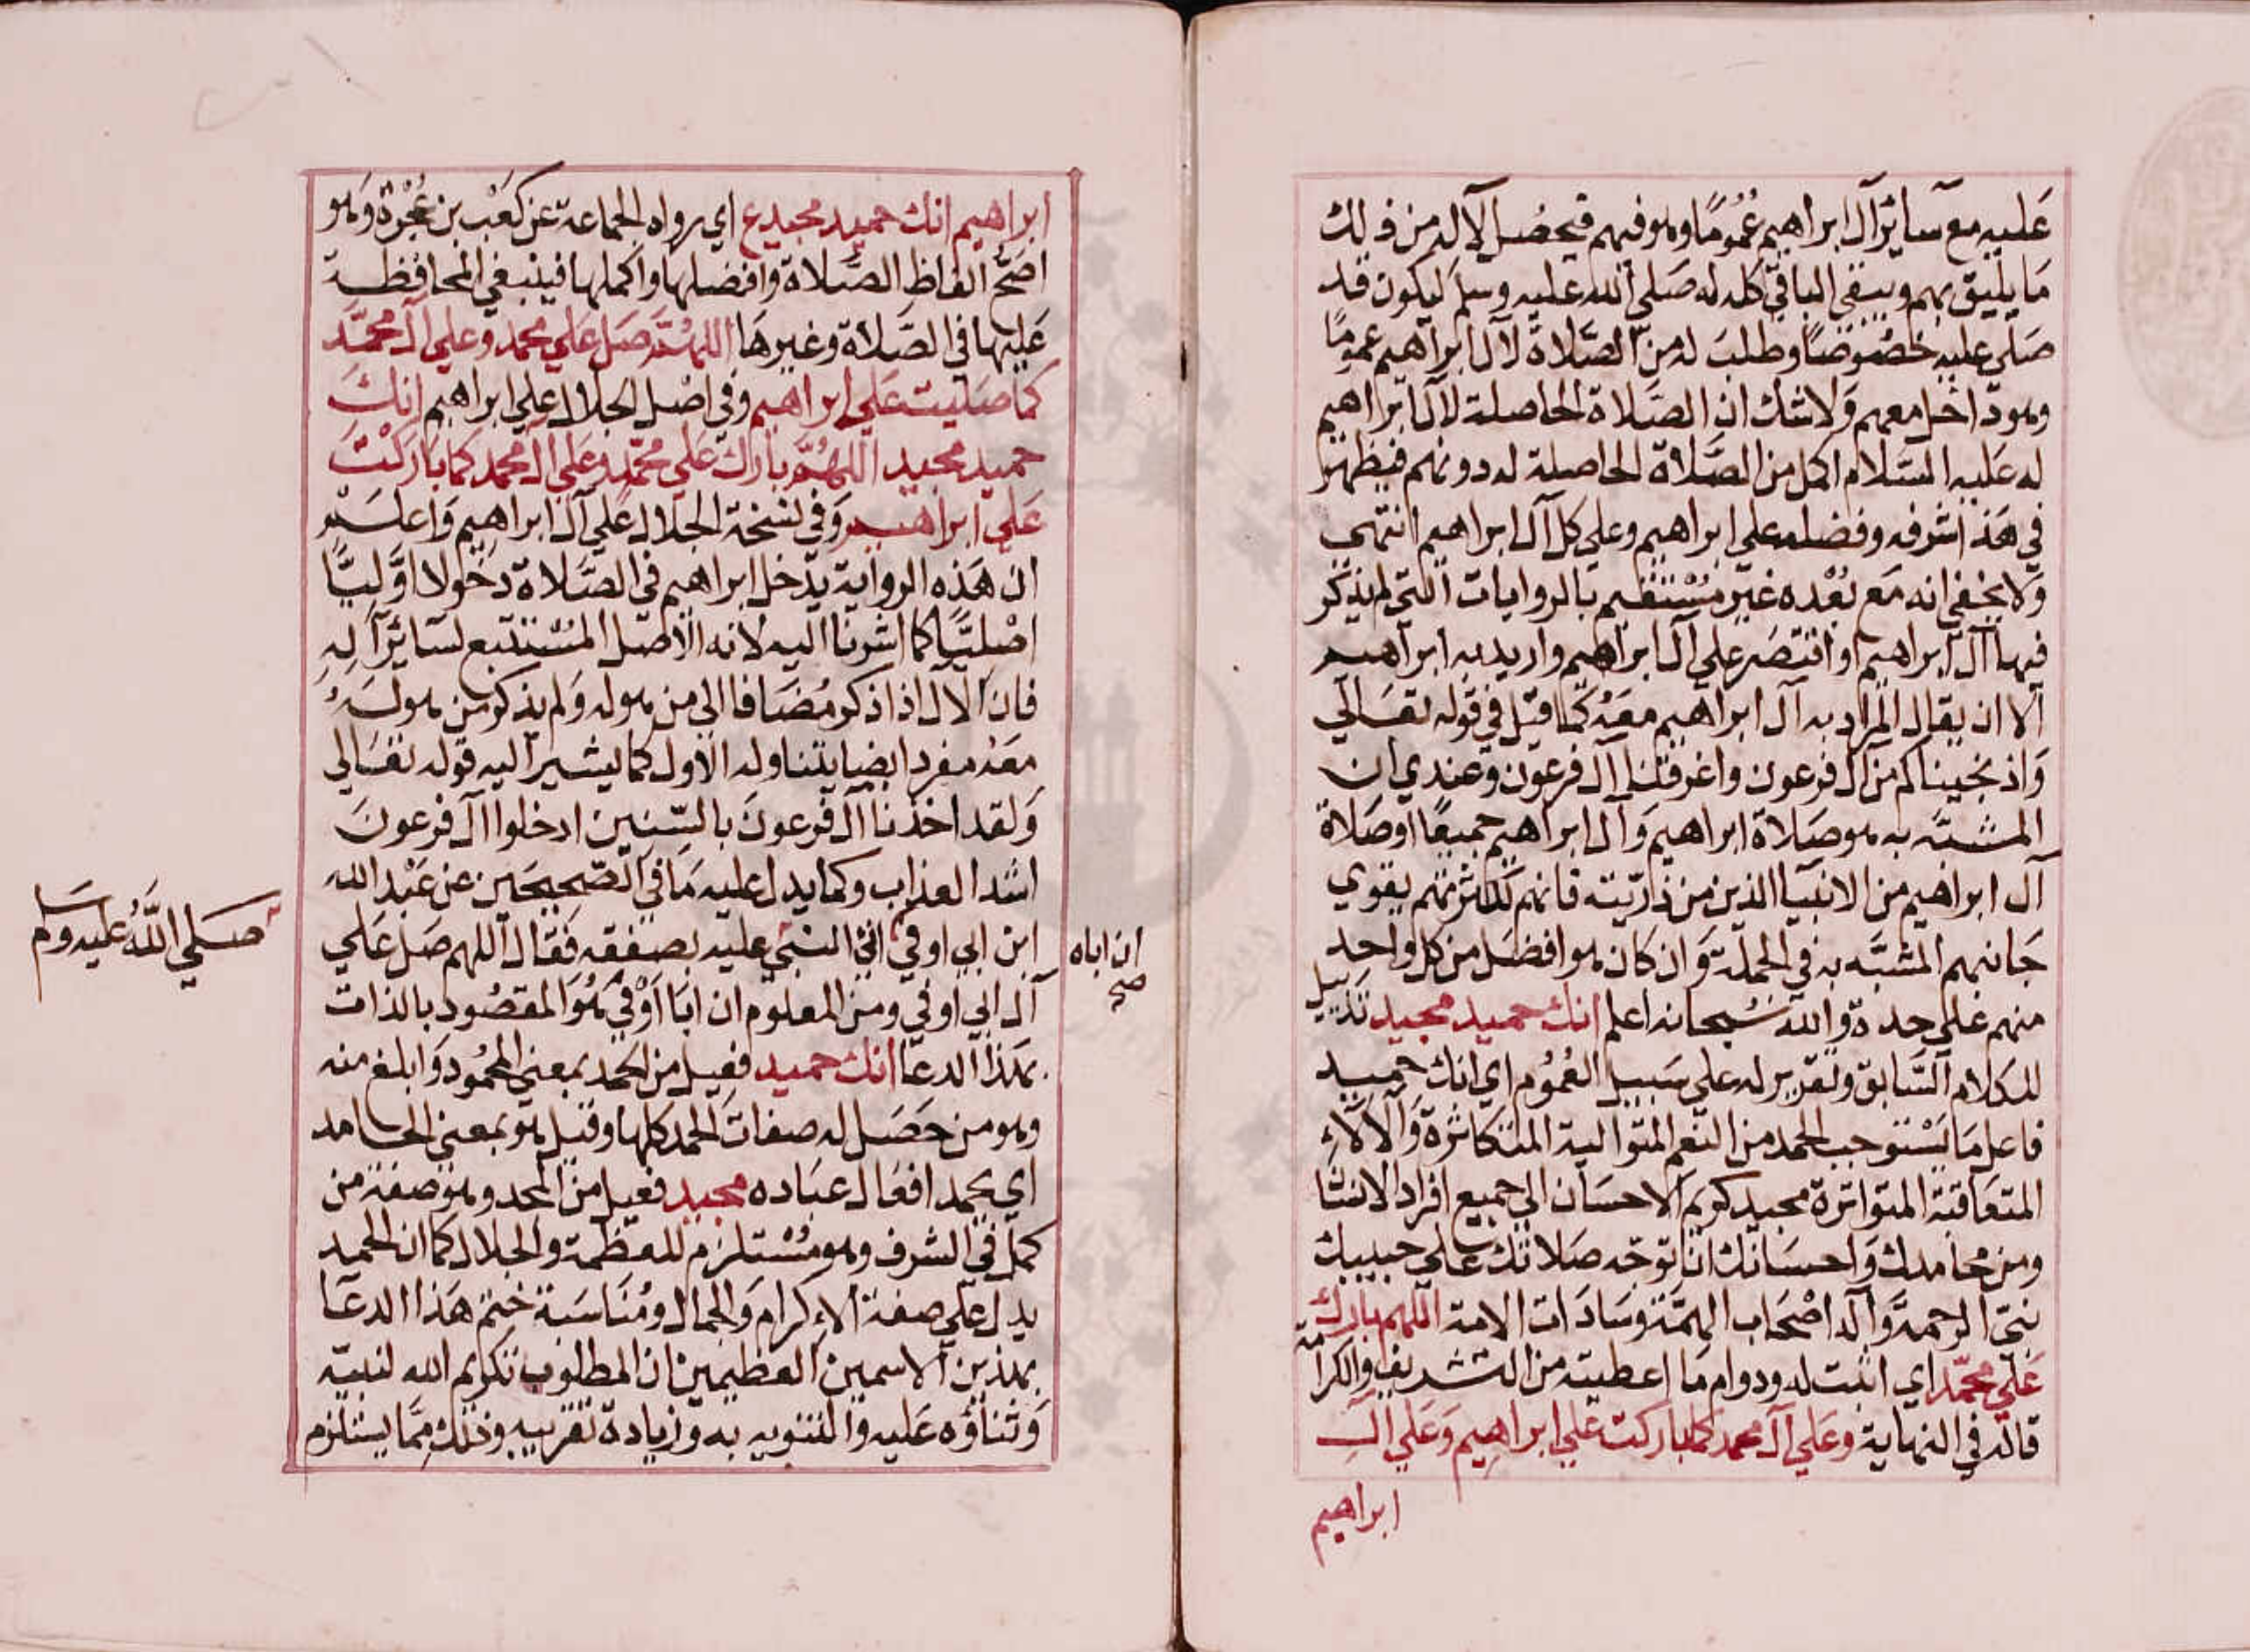 عليه مع سآئر آل ابراهيم عُمُومًا وهو فيهم فيحصُل لآله من ذلك
مَا يليق بهم ويبقى الباقي كله له صَلي الله عليه وسلم ليكون قد
صَلي عليه خصُوصًا وطلبَ له من الصَّلاة لآل ابراهيم عمومًا
وهو داخل معهم وَلا شك ان الصَّلاة الحاصلة لآل ابراهيم
له عَليه السَّلام اكمل من الصَّلاة الحاصلة له دونهم فيظهر
في هَذ اشرفه وفضله علي ابراهيم وعلي كل آل ابراهيم انتهي
وَلا يخفي انه مَع بُعْده غير مُسْتقيم بالروايات التي لم يذكر
فيها آل ابراهيم او اقتصَر علي آل ابراهيم واريد به ابراهيم
الا ان يقال المراد به آل ابراهيم معَهُ كما قيل في قوله تعَالي
وَاذ نجيناكم من آل فرعون واغرقنا آل فرعون وعندي ان
المشبّه به هو صَلاة ابراهيم وَآل ابراهيم جميعًا او صَلاة
آل ابراهيم من الانبيا الذين من ذريّته فانهم لكثرتهم يقوي
جَانبهم المشبَّه به في الجملة وَان كان هو افضَل من كل واحد
منهم علي حدة والله سُبحانه اعلم انك حميد مجيد تذييل
للكلام السَّابق وتقرير له علي سَبيل العُمُوم اي انك حميد
فاعل مَا يَسْتوجب الحمد من النعم المتوالية المتكاثرة وَالآلآءِ
المتعَاقبة المتواترة مجيد كريم الاحسَان الي جميع افراد الانسَان
ومن محامدك وَاحسَانك ان توجّه صَلاتك علي حبيبك
نبيّ الرحمة وَآله اصْحَاب الهمّة وسَادَات الامة اللهم بارك
عَلي محمّد اي اثبت له ودوام مَا اعطيته من التشريف والكرامة
قاله في النهاية وعَلي آل محمد كما باركت علي ابراهيم وَعَلي آل
ابراهيم
ابراهيم انك حميد مجيد ع اي رواه الجماعة عن كعْب بن عُجْرة وَهو
اصَحّ الفاظ الصَّلاة وافضلها واكملها فينبغي المحافظة
عَليها في الصَّلاة وغيرهَا اللهُمَّ صَل عَلي محمد وعلي آل محمَّد
كما صَليت عَلي ابراهيم وفي اصْل الجلال علي ابراهيم انكَ
حميد مجيد اللهُمَّ بارك عَلي محمّد وعَلي آل محمد كمَا باركتَ
عَلي ابراهيم وَفي نسْخة الجلال علي آل ابراهيم وَاعلم
ان هَذه الرواية يدخل ابراهيم في الصَّلاة دخولا اوّليًّا
اصْليًّا كما اشرنا اليه لانه الاصل المُسْتتبع لسَآئر آلِهِ
فان الآل اذا ذكر مُضَافا الي من هو له وَلم يذكر من هو لَهُ
معَه مفردا ايضا يتناوله الاول كما يشير اليه قوله تعَالي
وَلقد اخذنا آل فرعونَ بالسّنين ادخلوا آل فرعونَ
اشد العذاب وكما يدل عليه مَا في الصّحيحَين عن عَبْد الله
ابن ابي اوفي اتي النبي عليه بصَدقة فقال اللهم صَل عَلي
آل ابي اوفي ومن المعلوم ان ابَا اَوْفي هُوَ المقصُود بالذات
بهَذا الدعَا انك حميد فعيل من الحمد بمعني المحمُود وَابلغ منه
وهو من حَصَل له صفات الحمد كلها وقيل هو بمعني الحامد
اي يحمد افعَال عبَاده مجيد فعيل من المجد وهو صفة من
كمل في الشرف وهو مُسْتلزم للعظمة والجلال كما ان الحميد
يدل علي صفة الاِكرام وَالجمال ومُنَاسَبة ختم هَذا الدعَا
بهذين الاسمين العظيمين ان المطلوب تكريم الله لنبيّه
وَثناؤه عَليه والتنويه به وزيادة تقريبه وذلك ممّا يستلزم
ان اباه
صح
صَلي اللَّهُ عليه وسلم